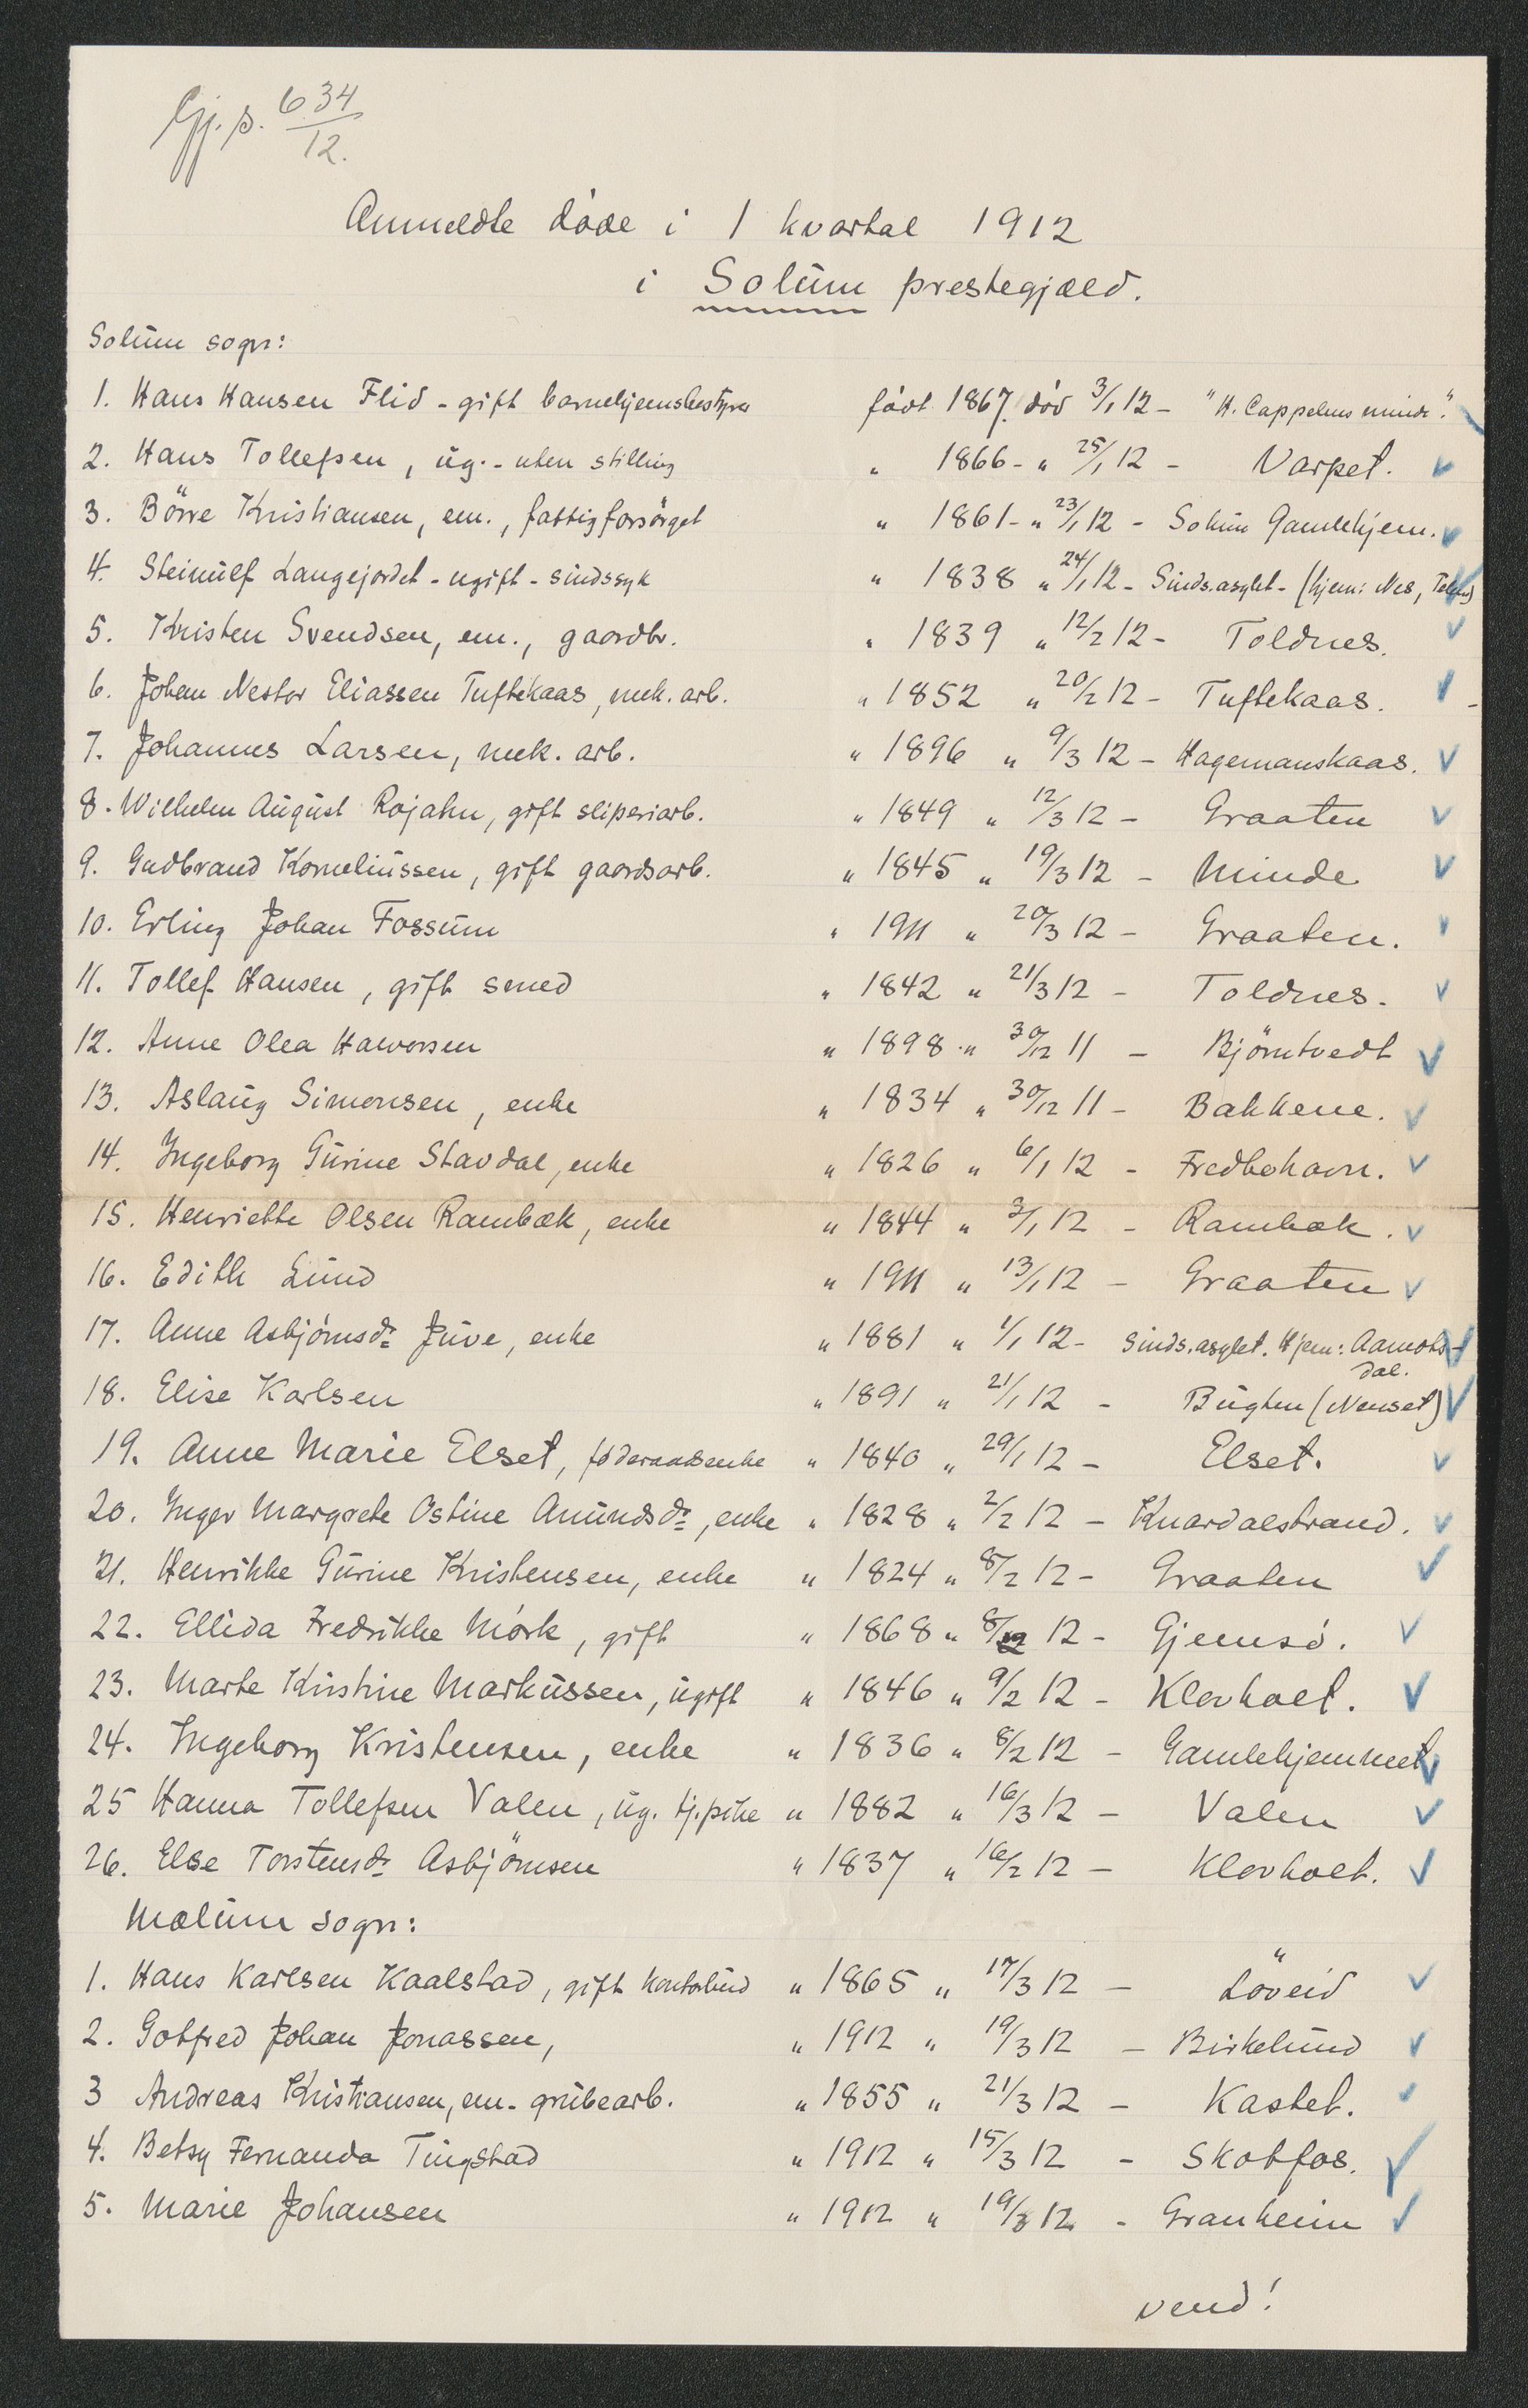 Gj. s. 634/12.
Anmeldte døde i 1 kvartal 1912
i Solum prestegjæld.
Solum sogn:
1. Hans Hansen Flid - gift barnehjemsbestyrer født 1867. død 3/1 12 - "H. Cappelens minde".
2. Hans Tollefsen, ug. - uten stilling " 1866 - " 25/1 12 - Varpet.
3. Börre Kristiansen, em., fattigforsörget " 1861 - " 23/1 12 - Solum Gamlehjem.
4. Steinulf Langejordet - ugift - sindssyk " 1838 " 24/1 12 - Sinds.asylet - (hjem: Nes, Telem)
5. Kristen Svendsen, em., gaardbr. " 1839 " 12/2 12 - Toldnes.
6. Johan Nestor Eliassen Tuftekaas, mek. arb. " 1852 " 20/2 12 - Tuftekaas.
7. Johannes Larsen, mek. arb. " 1896 " 9/3 12 - Hagemanskaas.
8. Wilhelm August Rojahn, gift sliperiarb. " 1849 " 12/3 12 - Graaten
9. Gudbrand Korneliussen, gift gaardsarb. " 1845 " 19/3 12 - Minde
10. Erling Johan Fossum " 1911 " 20/3 12 - Graaten.
11. Tollef Hansen, gift smed " 1842 " 21/3 12 - Toldnes.
12. Anne Olea Halvorsen " 1898 - " 30/12 11 - Björntvedt
13. Aslaug Simonsen, enke " 1834 " 30/12 11 - Bakkene.
14. Ingeborg Gurine Stavdal, enke " 1826 " 6/1 12 - Fredbohavn.
15. Henriette Olsen Rambæk, enke " 1844 " 3/1 12 - Rambæk.
16. Edith Lund " 1911 " 13/1 12 - Graaten
17. Anne Asbjörnsdr Juve, enke " 1881 " 1/1 12 - Sinds.asylet. Hjem: Aamots-
dal.
18. Elise Karlsen " 1891 " 21/1 12 - Bugten (Nenset)
19. Anne Marie Elset, föderaadsenke " 1840 " 29/1 12 - Elset.
20. Inger Margrete Ostine Amundsdr, enke " 1828 " 2/2 12 - Knardalstrand.
21. Henrikke Gurine Kristensen, enke " 1824 " 8/2 12 - Graaten
22. Ellida Fredrikke Mörk, gift " 1868 " 8/2 12 - Gjemsö.
23. Marte Kirstine Markussen, ugift " 1846 " 9/2 12 - Klovholt.
24. Ingeborg Kristensen, enke " 1836 " 8/2 12 - Gamlehjemmet
25 Hanna Tollefsen Valen, ug. tj.pike " 1882 " 16/3 12 - Valen
26. Else Torstensdr Asbjörnsen " 1837 " 16/2 12 - Klovholt.
Mælum sogn:
1. Hans Karlsen Kaalstad, gift kontorbud " 1865 " 17/3 12 - Löveid
2. Gotfred Johan Jonassen, " 1912 " 19/3 12 - Birkelund
3 Andreas Kristiansen, em. grubearb. " 1855 " 21/3 12 - Kastet.
4. Betsy Fernanda Tingstad " 1912 " 15/3 12 - Skotfos.
5. Marie Johansen " 1912 " 19/3 12 - Granheim
vend!